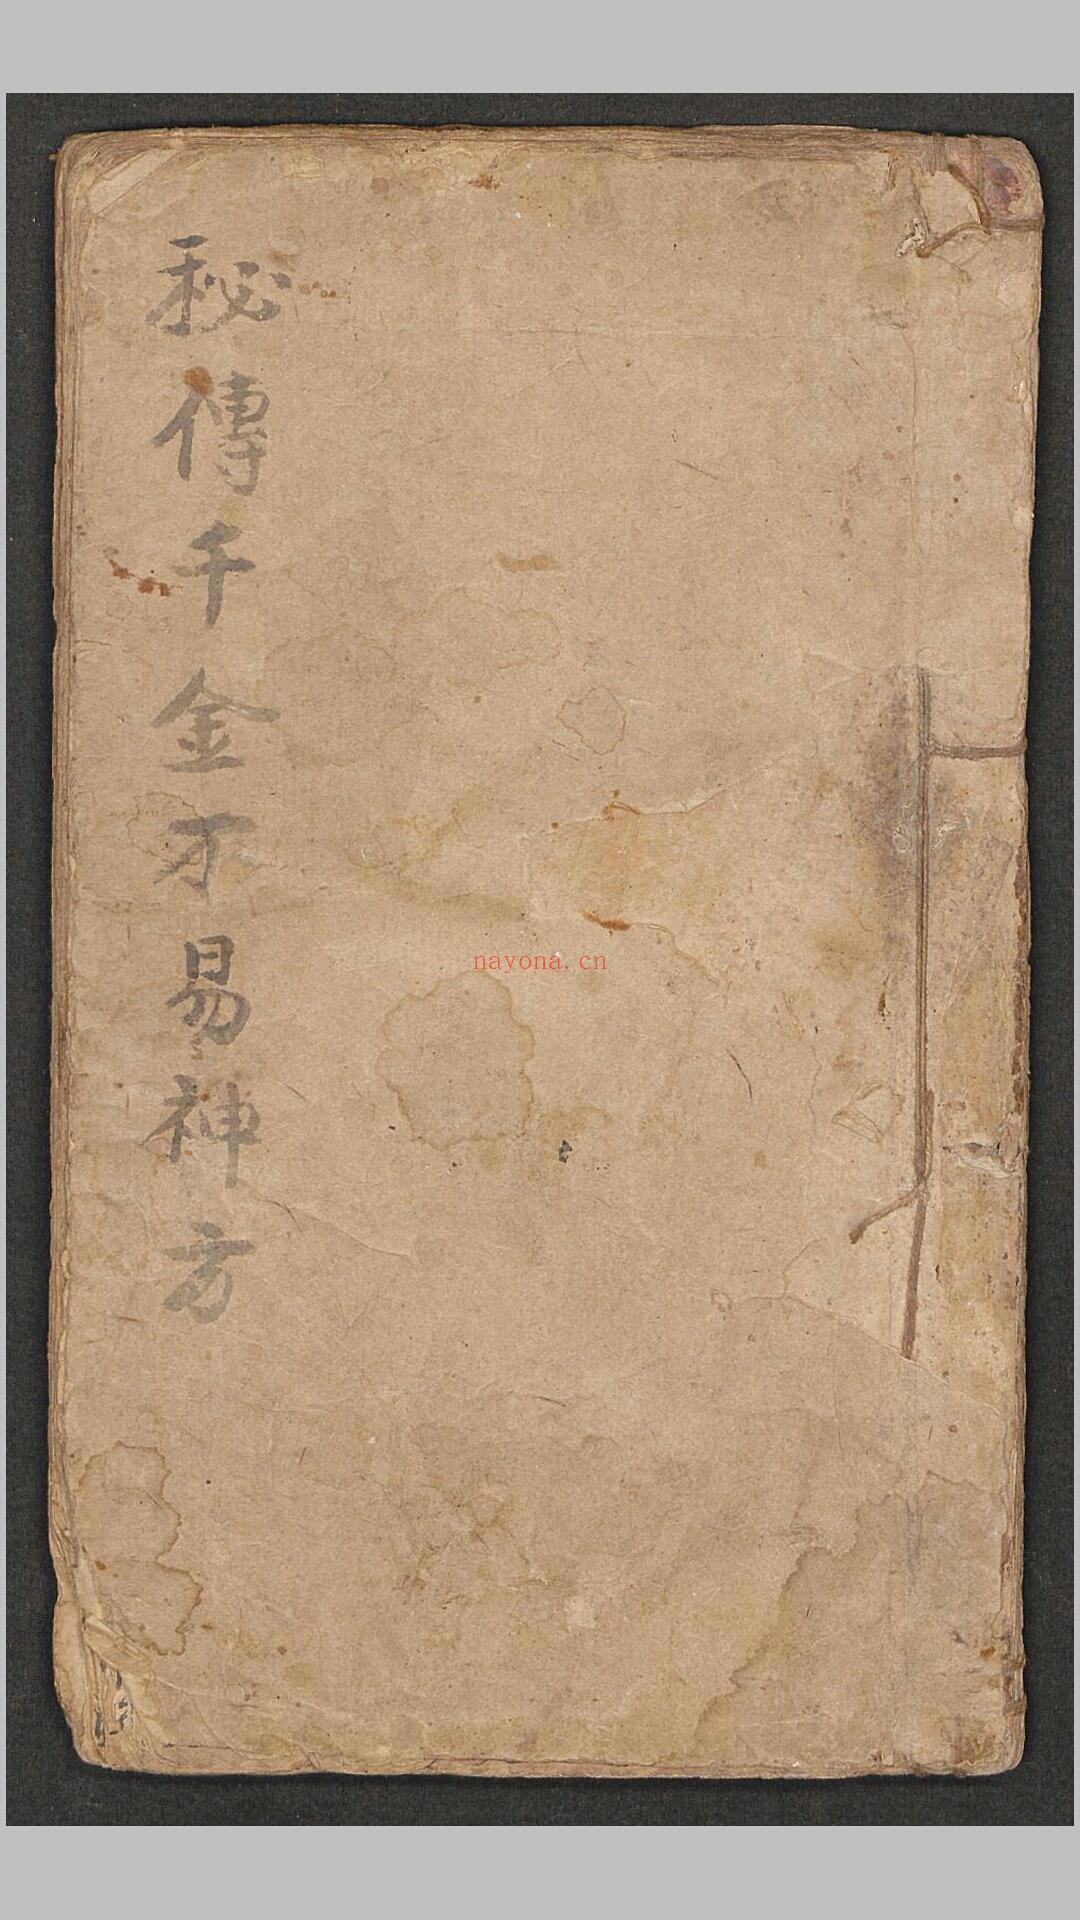 秘傳千金不易神方
nayona.cn